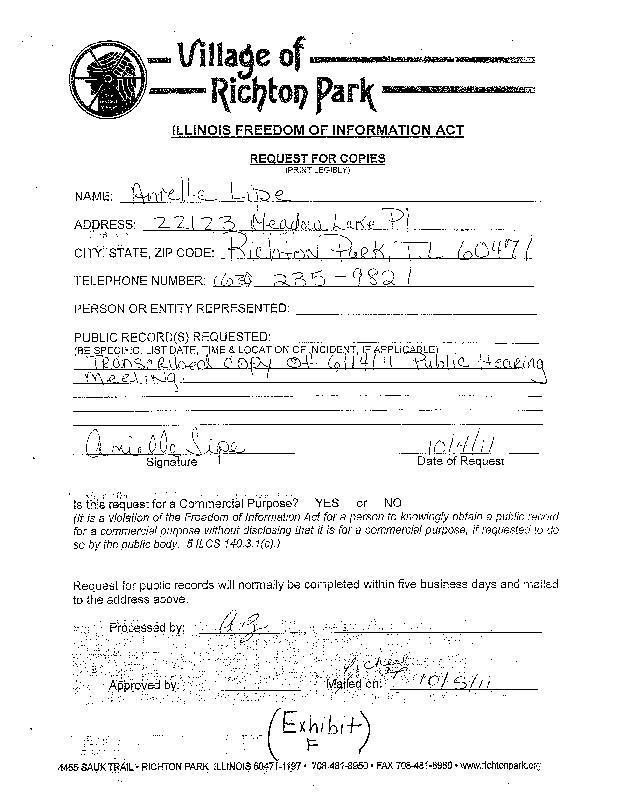 Village of
Richton Park
ILLINOIS FREEDOM OF INFORMATION ACT
REQUEST FOR COPIES
(PRINT LEGIBLY)
NAME: Arrelle Lipe
ADDRESS: 22123 Meadow Lake Pl
CITY, STATE, ZIP CODE: Richton Park, IL 60471
TELEPHONE NUMBER: (630) 235-9821
PERSON OR ENTITY REPRESENTED:
PUBLIC RECORD(S) REQUESTED:
(BE SPECIFIC, LIST DATE, TIME & LOCATION OF INCIDENT, IF APPLICABLE)
Transcribed copy of 6/14/11 Public Hearing
Meeting.
Lipe 10/4/11
Signature Date of Request
Is this request for a Commercial Purpose? YES or NO
(It is a violation of the Freedom of Information Act for a person to knowingly obtain a public record
for a commercial purpose without disclosing that it is for a commercial purpose, if requested to do
so by the public body. 5 ILCS 140.3.1(c).)
Request for public records will normally be completed within five business days and mailed
to the address above.
Processed by:
Approved by: Mailed on: 10/5/11
(Exhibit
F)
4455 SAUK TRAIL • RICHTON PARK, ILLINOIS 60471-1197 • 708-481-8950 • FAX 708-481-8980 • www.richtonpark.org